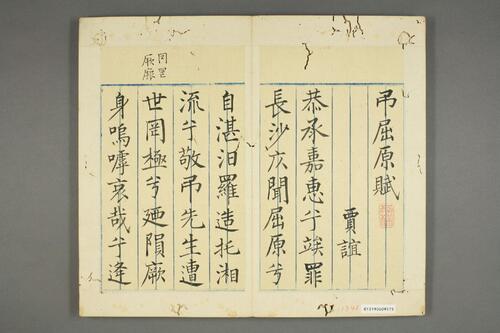 弔屈原賦
賈誼
恭承嘉惠兮竢罪
長沙庂聞屈原兮
自湛汨羅造托湘
流兮敬弔先生遭
世罔極兮廼隕厥
身嗚嘑哀哉兮逢